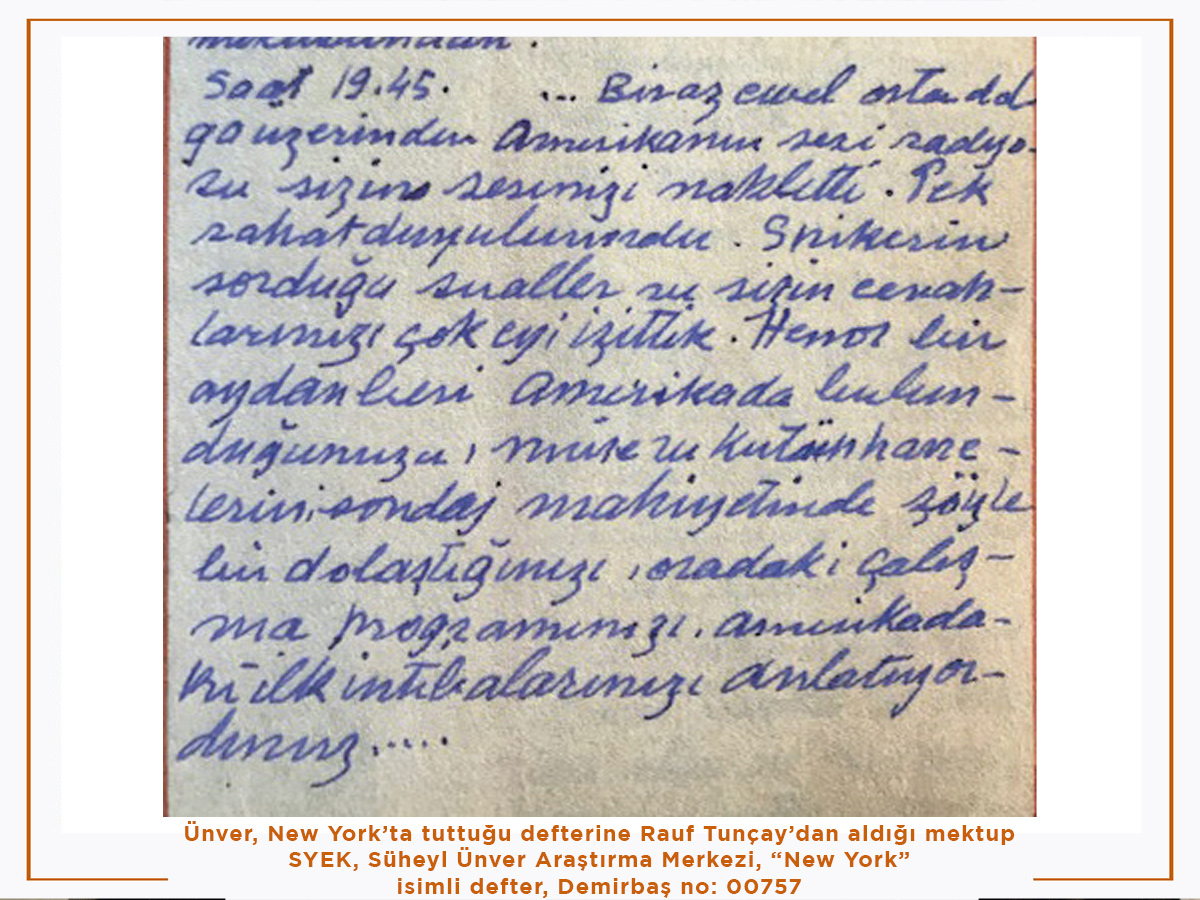 mektubundan.
Saat 19.45. ... Biraz evvel orta dal
ga üzerinden Amerikanın sesi radyo-
su sizin sesinizi nakletti. Pek
rahat duyuluyordu. Spikerin
sorduğu sualler ve sizin cevap-
larınızı çok eyi işittik. Henoz bir
aydanberi Amerikada bulun-
duğunuzu, müze ve kutüphane-
lerini sondaj mahiyetinde şöyle
bir dolaştığınızı, oradaki çalış-
ma programınızı, Amerikada-
ki ilk intibalarınızı anlatıyor-
dunuz.....
Ünver, New York’ta tuttuğu defterine Rauf Tunçay’dan aldığı mektup
SYEK, Süheyl Ünver Araştırma Merkezi, “New York”
isimli defter, Demirbaş no: 00757